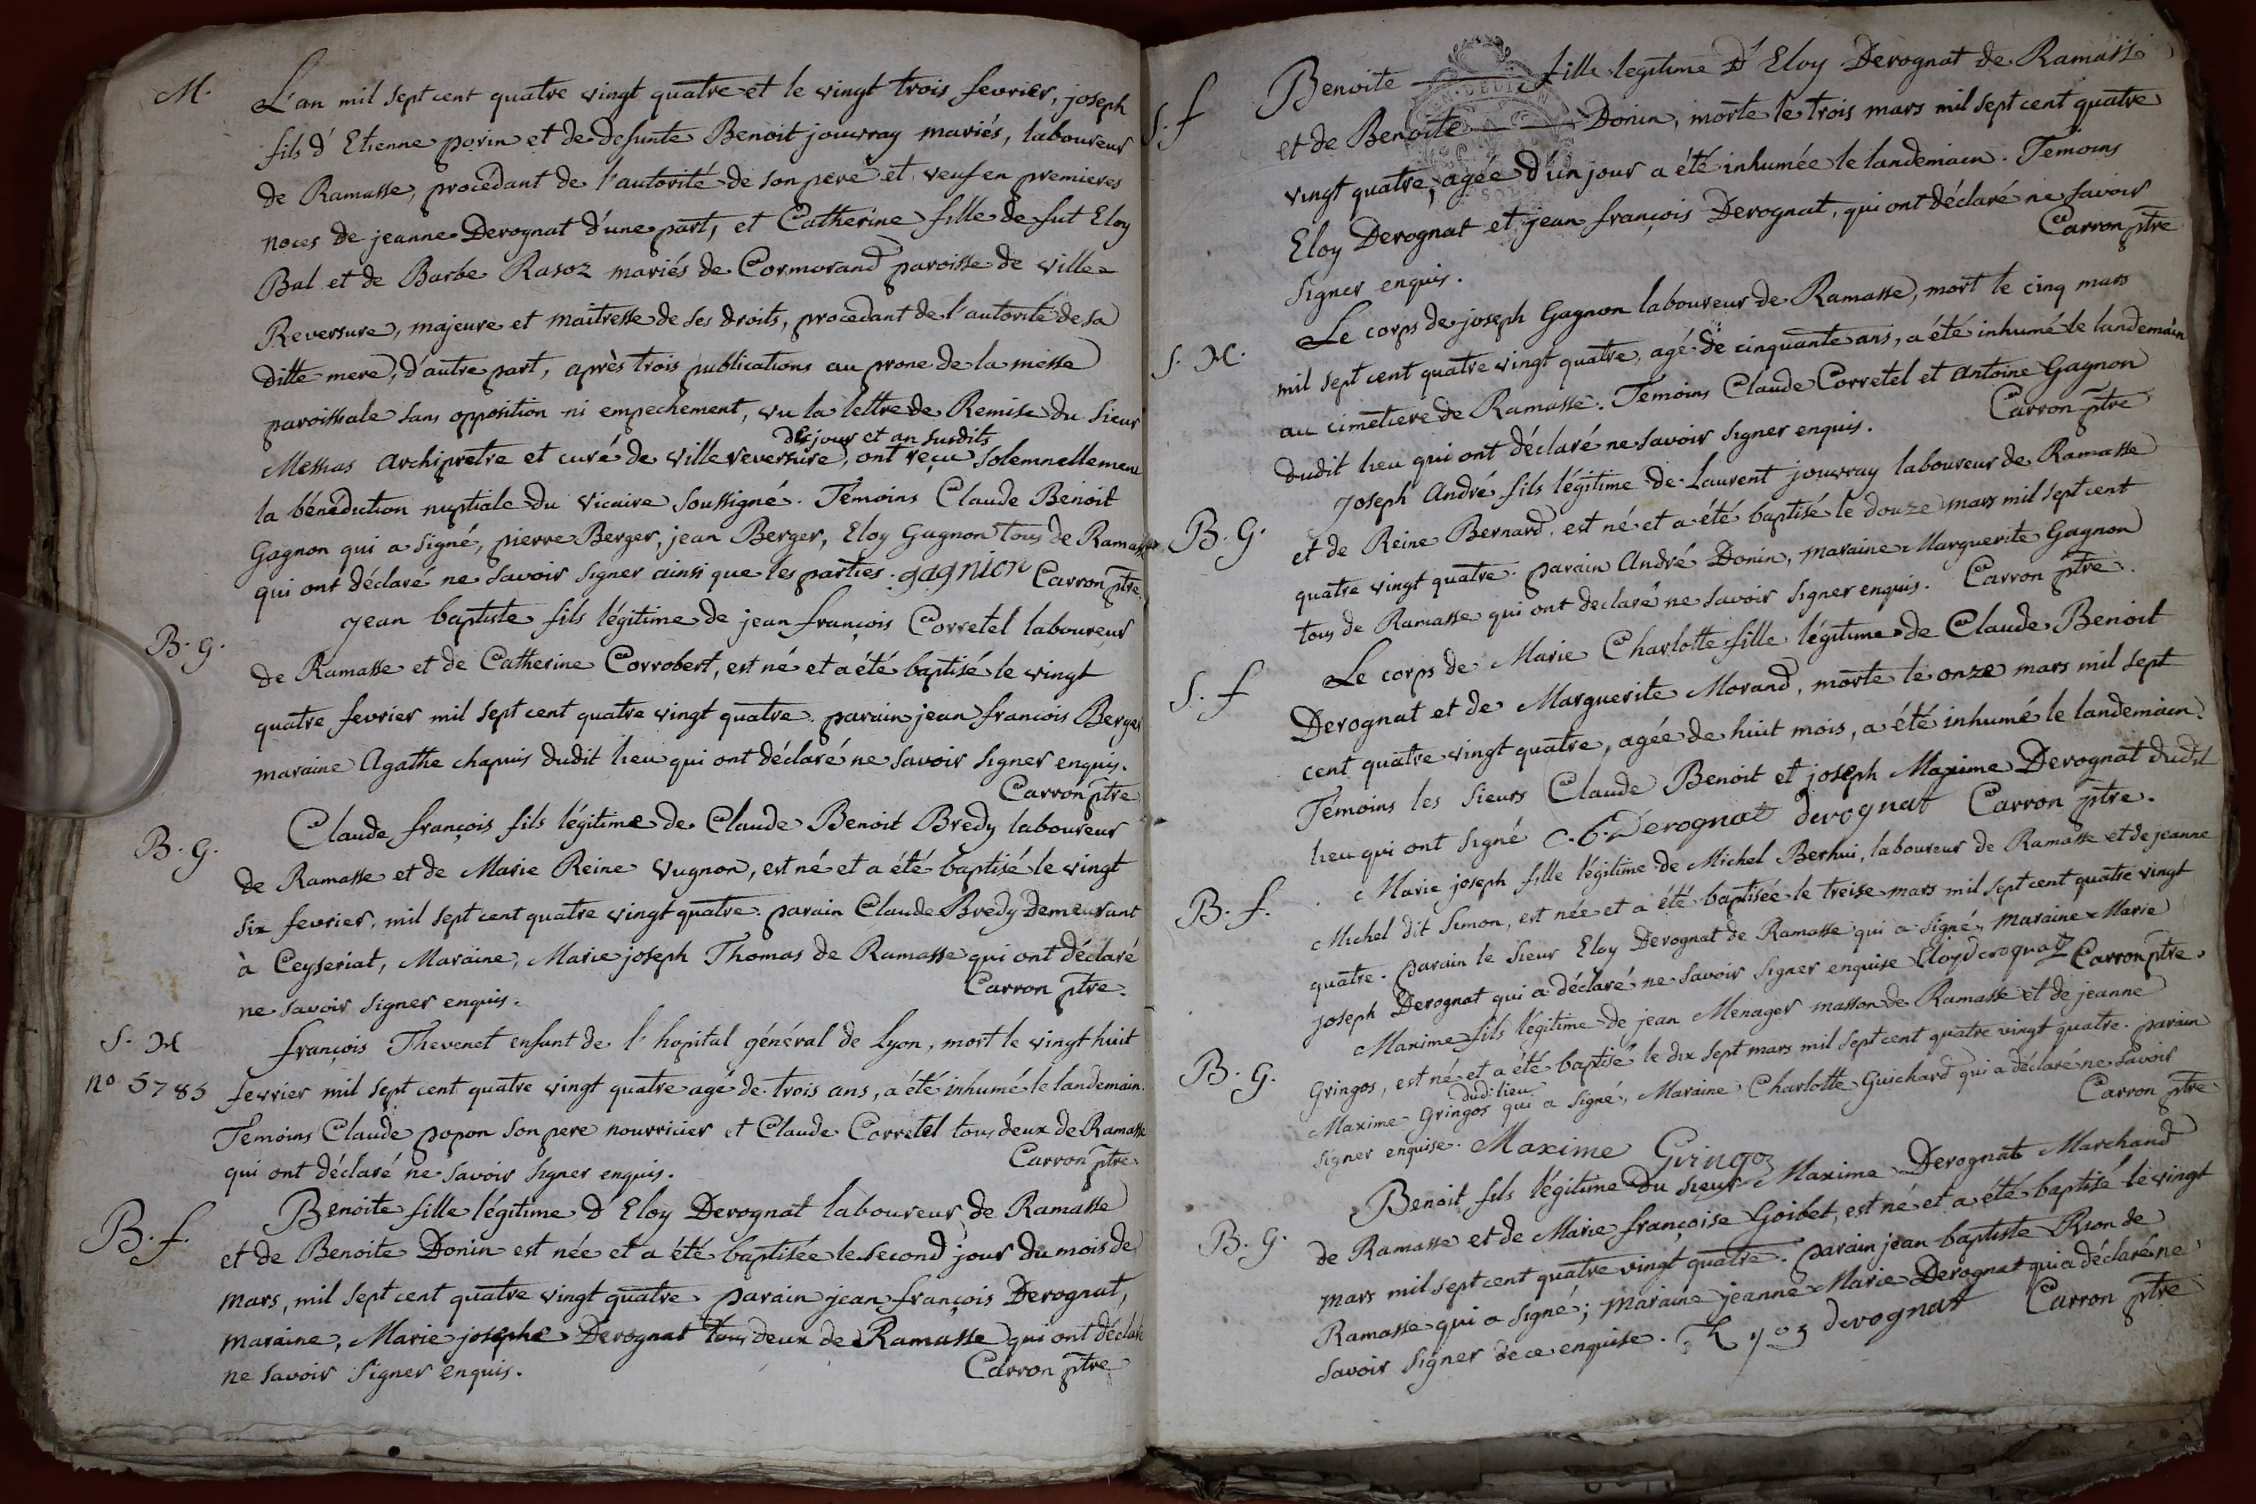 M.
L'an mil sept cent quatre vingt quatre et le vingt trois fevrier, joseph
fils d'Etienne porin et de defunte Benoit jouvray mariés, laboureur
de Ramasse, procedant de l'autorité de son pere et veuf en premieres
noces de jeanne Derognat d'une part, et Catherine fille de fut Eloy
Bal et de Barbe Rasoz mariés de Cormorand paroisse de ville
Reversure, majeure et maitresse de ses droits, procedant de l'autorité de sa
ditte mere, d'autre part, après trois publications au prone de la messe
paroissiale sans opposition ni empechement, vu la lettre de Remise du sieur
des jour et an susdits
Messias Archipretre et curé de ville reversure, ont reçu solemnellement
la bénédiction nuptiale du vicaire soussigné. Témoins Claude Benoit
Gagnon qui a signé, pierre Berger, jean Berger, Eloy Gagnon tous de Ramasse
qui ont déclaré ne savoir signer ainsi que les parties. gagnion Carron ptre.
B. g.
jean baptiste fils légitime de jean françois Corretel laboureur
de Ramasse et de Catherine Corrobert, est né et a été baptisé le vingt
quatre fevrier mil sept cent quatre vingt quatre. parain jean francois Berger
maraine Agathe chapuis dudit lieu qui ont déclaré ne savoir signer enquis.
Carron ptre
B. g.
Claude françois fils légitime de Claude Benoit Bredy laboureur
de Ramasse et de Marie Reine Vugnon, est né et a été baptisé le vingt
six fevrier, mil sept cent quatre vingt quatre. parain Claude Bredy Demeurant
à Ceyseriat, Maraine, Marie joseph Thomas de Ramasse qui ont déclaré
ne savoir signer enquis.
Carron ptre.
S. M
françois Thevenet enfant de l'hopital général de Lyon, mort le vingt huit
no 5785
fevrier mil sept cent quatre vingt quatre agé de trois ans, a été inhumé le landemain.
Temoins Claude popon son pere nourricier et Claude Corretel tous deux de Ramasse
qui ont déclaré ne savoir signer enquis.
Carron ptre
B. f.
Benoite fille légitime d'Eloy Derognat laboureur de Ramasse
et de Benoite Donin est née et a été baptisée le second jour du mois de
mars, mil sept cent quatre vingt quatre. parain jean françois Derognat,
maraine, Marie josephe Derognat tous deux de Ramasse qui ont déclaré
ne savoir signer enquis.
Carron ptre
S. f
Benoite fille legitime D'Eloy Derognat de Ramasse
et de Benoite Donin, morte le trois mars mil sept cent quatre
vingt quatre, agée d'un jour a été inhumée le landemain. Temoins
Eloy Derognat et jean françois Derognat, qui ont déclaré ne savoir
signer enquis.
Carron ptre
S. M.
Le corps de joseph Gagnon laboureur de Ramasse, mort le cinq mars
mil sept cent quatre vingt quatre, agé de cinquante ans, a été inhumé le landemain
au cimetiere de Ramasse. Temoins Claude Corretel et Antoine Gagnon
dudit lieu qui ont déclaré ne savoir signer enquis.
Carron ptre
B. G.
joseph André fils légitime de Laurent jouvray laboureur de Ramasse
et de Reine Bernard, est né et a été baptisé le douze mars mil sept cent
quatre vingt quatre. parain André Donin, maraine Marguerite Gagnon
tous de Ramasse qui ont declaré ne savoir signer enquis. Carron ptre.
S. f
Le corps de Marie Charlotte fille légitime de Claude Benoit
Derognat et de Marguerite Morand, morte le onze mars mil sept
cent quatre vingt quatre, agée de huit mois, a été inhumé le landemain.
Témoins les sieurs Claude Benoit et joseph Maxime Derognat dudit
lieu qui ont signé C. b. Derognat derognat Carron ptre.
B. f.
Marie joseph fille légitime de Michel Berhui, laboureur de Ramasse et de jeanne
Michel dit Simon, est née et a été baptisée le treise mars mil sept cent quatre vingt
quatre. parain le sieur Eloy Derognat de Ramasse qui a signé, maraine Marie
joseph Derognat qui a déclaré ne savoir signer enquise Eloy derognat Carron ptre.
B. g.
Maxime fils légitime de jean Menager masson de Ramasse et de jeanne
Gringos, est né et a été baptisé le dix sept mars mil sept cent quatre vingt quatre. parain
dudit lieu
Maxime Gringos qui a signé, Maraine Charlotte Guichard qui a déclaré ne savoir
signer enquise. Maxime Gringoz
Carron ptre
B. g.
Benoit fils légitime du sieur Maxime Derognat Marchand
de Ramasse et de Marie françoise Goibet, est né et a été baptisé le vingt
mars mil sept cent quatre vingt quatre. parain jean baptiste Rion de
Ramasse qui a signé; maraine jeanne Marie Derognat qui a déclaré ne
savoir signer de ce enquise. derognat Carron ptre